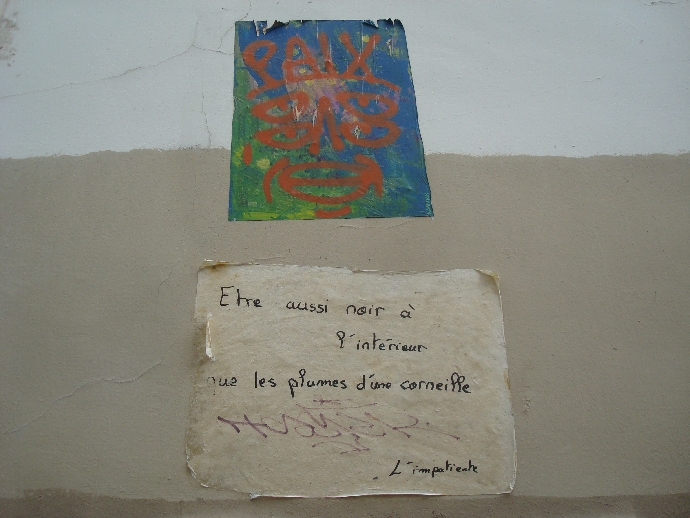 PAIX
Etre aussi noir à
l'intérieur
que les plumes d'une corneille
L'impatiente